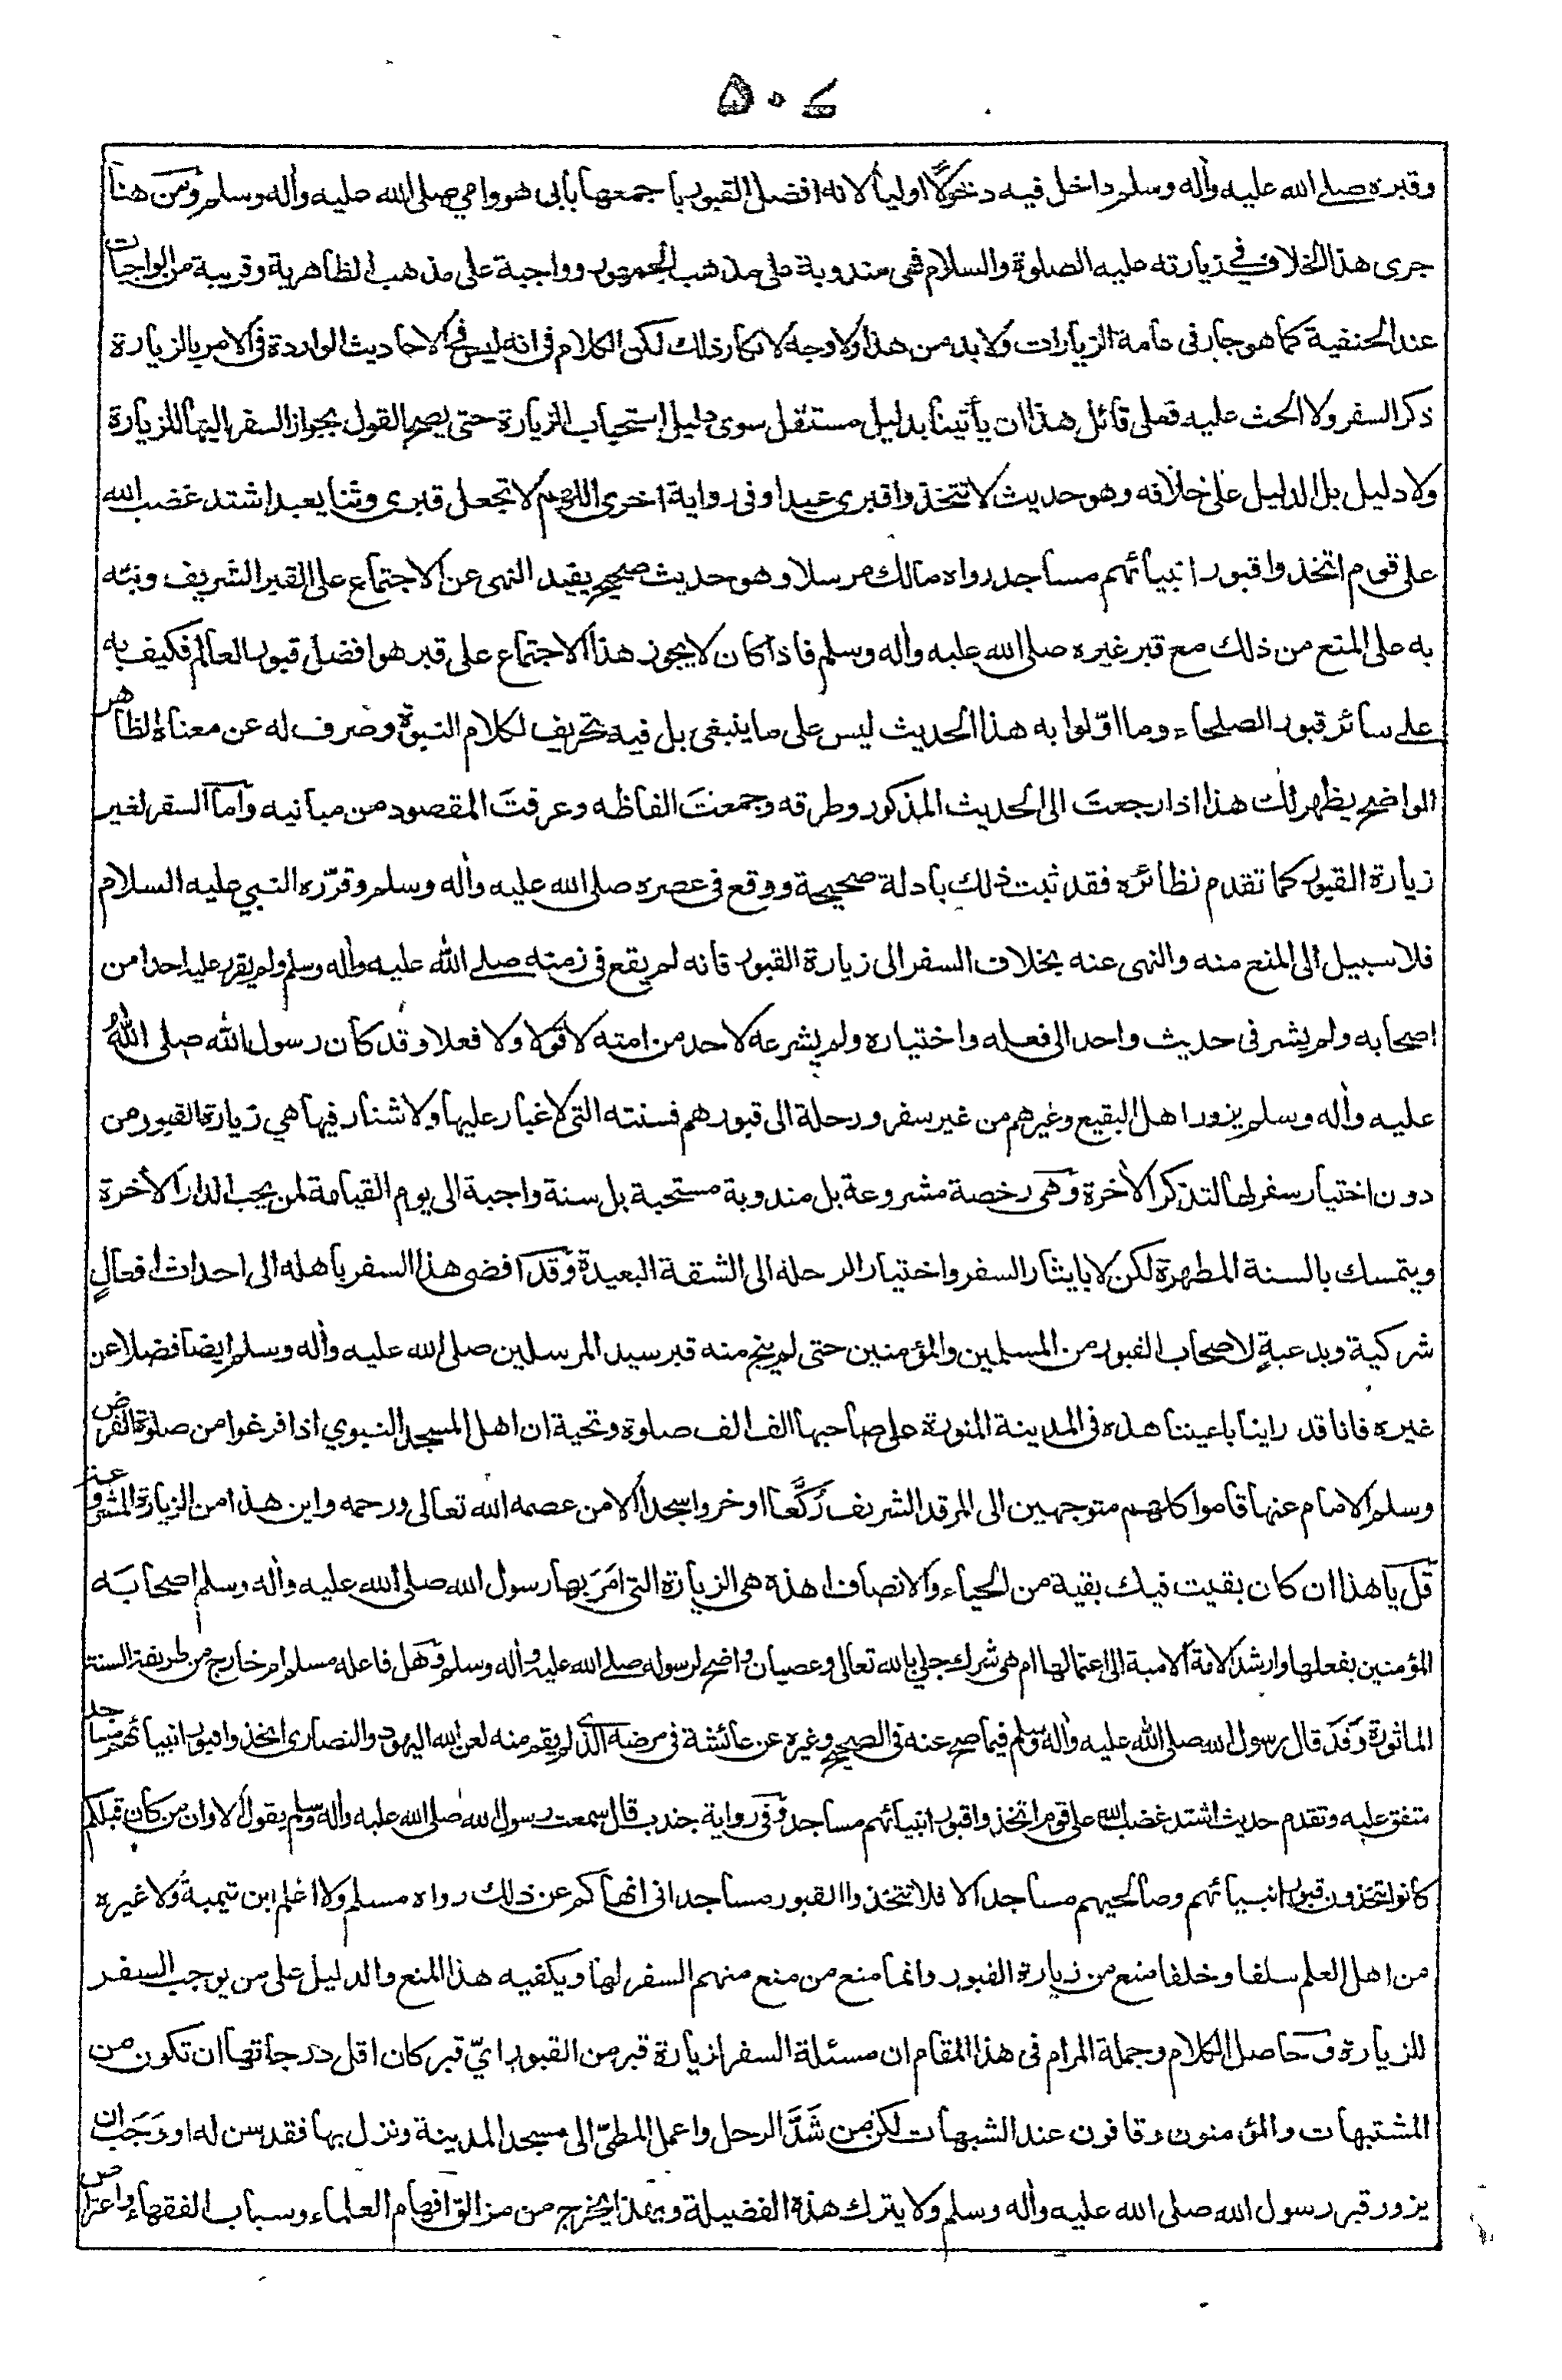 ۵۰۷
وقبره صلى الله عليه وأله وسلم داخل فيه دخولًا اوليا لانه افضل القبور باجمعها بابى هو وامي صلى الله عليه وأله وسلم ومن هنا
جرى هذا الخلاف في زيارته عليه الصلوة والسلام فهى مندوبة على مذهب الجمهور وواجبة على مذهب الظاهرية وقريبة من الواجبات
عند الحنفية كما هو جار فى عامة الزيارات ولا بد من هذا ولا وجه لانكار ذلك لكن الكلام فى انه ليس فى الاحاديث الواردة فى الامر بالزيارة
ذكر السفر ولا الحث عليه فعلى قائل هذا ان يأتينا بدليل مستقل سوى دليل استحباب الزيارة حتى يصح القول بجواز السفر اليها للزيارة
ولا دليل بل الدليل على خلافه وهو حديث لا تتخذوا قبرى عيدا وفى رواية اخرى اللهم لا تجعل قبرى وثنا يعبد اشتد غضب الله
على قوم اتخذوا قبور انبيائهم مساجد رواه مالك مرسلا وهو حديث صحيح يفيد النهى عن الاجتماع على القبر الشريف ونبّه
به على المنع من ذلك مع قبر غيره صلى الله عليه وأله وسلم فاذا كان لا يجوز هذا الاجتماع على قبر هو افضل قبور العالم فكيف به
على سائر قبور الصلحاء وما اوّلوا به هذا الحديث ليس على ما ينبغى بل فيه تحريف لكلام النبوة وصرف له عن معناه الظاهر
الواضح يظهر لك هذا اذا رجعتَ الى الحديث المذكور وطرقه وجمعتَ الفاظه وعرفتَ المقصود من مبانيه وأما السفر لغير
زيارة القبور كما تقدم نظائره فقد ثبت ذلك بادلة صحيحة ووقع فى عصره صلى الله عليه وأله وسلم وقرّره النبي عليه السلام
فلا سبيل الى المنع منه والنهى عنه بخلاف السفر الى زيارة القبور فانه لم يقع فى زمنه صلى الله عليه وأله وسلم ولم يقرر عليه احدا من
اصحابه ولم يشر فى حديث واحد الى فعله واختياره ولم يشرعه لاحد من امته لا قولا ولا فعلا وقد كان رسول الله صلى اللهُ
عليه وأله وسلم يزور اهل البقيع وغيرهم من غير سفر ورحلة الى قبورهم فسنته التى لا غبار عليها ولا شنار فيها هي زيارة القبور من
دون اختيار سفر لها لتذكر الأخرة وهى رخصة مشروعة بل مندوبة مستحبة بل سنة واجبة الى يوم القيامة لمن يحب الدار الأخرة
ويتمسك بالسنة المطهرة لكن لا بايثار السفر واختيار الرحلة الى الشقة البعيدة وقد افضى هذا السفر باهله الى احداث افعالٍ
شركية وبدعيةٍ لاصحاب القبور من المسلمين والمؤمنين حتى لم ينج منه قبر سيد المرسلين صلى الله عليه وأله وسلم ايضا فضلا عن
غيره فانا قد راينا باعيننا هذه فى المدينة المنورة على صاحبها الف الف صلوة وتحية ان اهل المسجد النبوي اذا فرغوا من صلوة الفرض
وسلم الامام عنها قاموا كلهم متوجهين الى المرقد الشريف رُكَّعًا او خروا سجدا الا من عصمه الله تعالى ورحمه واين هذا من الزيارة المشروعة
قل يا هذا ان كان بقيت فيك بقية من الحياء والانصاف اهذه هى الزيارة التى امَرَ بها رسول الله صلى الله عليه وأله وسلم اصحابَه
المؤمنين بفعلها وارشد الامة الامية الى اعتمالها ام هى شرك جلي بالله تعالى وعصيان واضح لرسوله صلى الله عليه وأله وسلم وهل فاعله مسلم ام خارج من طريقة السنة
الماثورة وقد قال رسول الله صلى الله عليه وأله وسلم فيما صح عنه فى الصحيح وغيره عن عائشة فى مرضه الذى لم يقم منه لعن الله اليهود والنصارى اتخذوا قبور انبيائهم مساجد
متفق عليه وتقدم حديث اشتد غضب الله على قوم اتخذوا قبور انبيائهم مساجد وفى رواية جندب قال سمعت رسول الله صلى الله عليه وأله وسلم يقول الا وان من كان قبلكم
كانوا يتخذون قبور انبيائهم وصالحيهم مساجد الا فلا تتخذوا القبور مساجد انى انهاكم عن ذلك رواه مسلم ولا اعلم ابن تيمية ولا غيره
من اهل العلم سلفا وخلفا منع من زيارة القبور وانما منع من منع منهم السفر لها ويكفيه هذا المنع والدليل على من يوجب السفر
للزيارة وحاصل الكلام وجملة المرام فى هذا المقام ان مسئلة السفر لزيارة قبر من القبور ايّ قبر كان اقل درجاتها ان تكون من
المشتبهات والمؤمنون وقافون عند الشبهات لكن من شَدَّ الرحل واعمل المطيّ الى مسجد المدينة ونزل بها فقد سن له او وَجَبَ ان
يزور قبر رسول الله صلى الله عليه وأله وسلم ولا يترك هذه الفضيلة وبهذا يخرج من مزالق افهام العلماء وسباب الفقهاء واعتراض